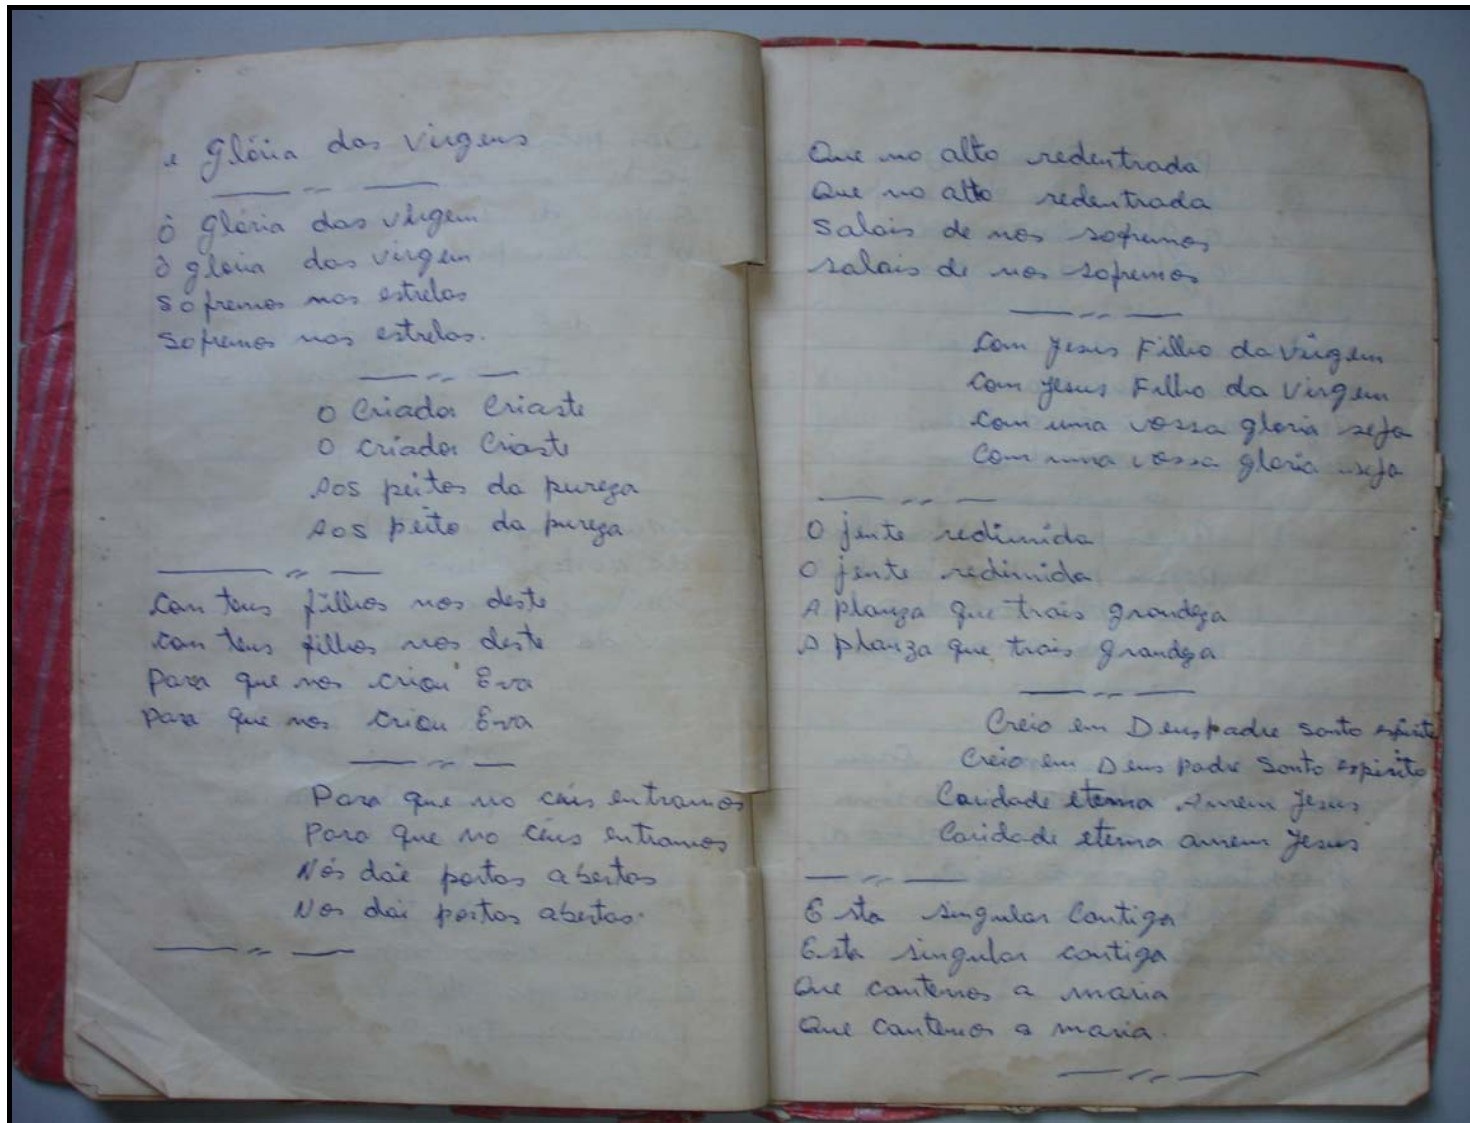 Glória das Virgens
ô glória das virgem
ô gloria das virgem
Sofremos nas estrelas
Sofremos nas estrelas.
O Criador Criaste
O criador Criaste
Aos peitos da pureza
Aos peito da pureza
Com teus filhos nos deste
Com teus filhos nos deste
Para que nos criou Eva
Para que nos criou Eva
Para que no céus entramos
Para que no céus entramos
Nós dai portas abertas
Nos dai portas abertas.
Que no alto redentrada
Que no alto redentrada
Salais de nos sofremos
salais de nos sofremos
Com Jesus Filho da Virgem
Com Jesus Filho da Virgem
Com uma vossa gloria seja
Com uma vossa gloria seja
O jente redimida
O jente redimida
A planza que trais grandeza
A planza que trais grandeza
Creio em Deus padre Santo espirito
Creio em Deus padre Santo espirito
Caridade eterna Amem Jesus
Caridade eterna amem Jesus
Esta singular Cantiga
Esta singular cantiga
Que cantemos a maria
Que cantemos a maria.